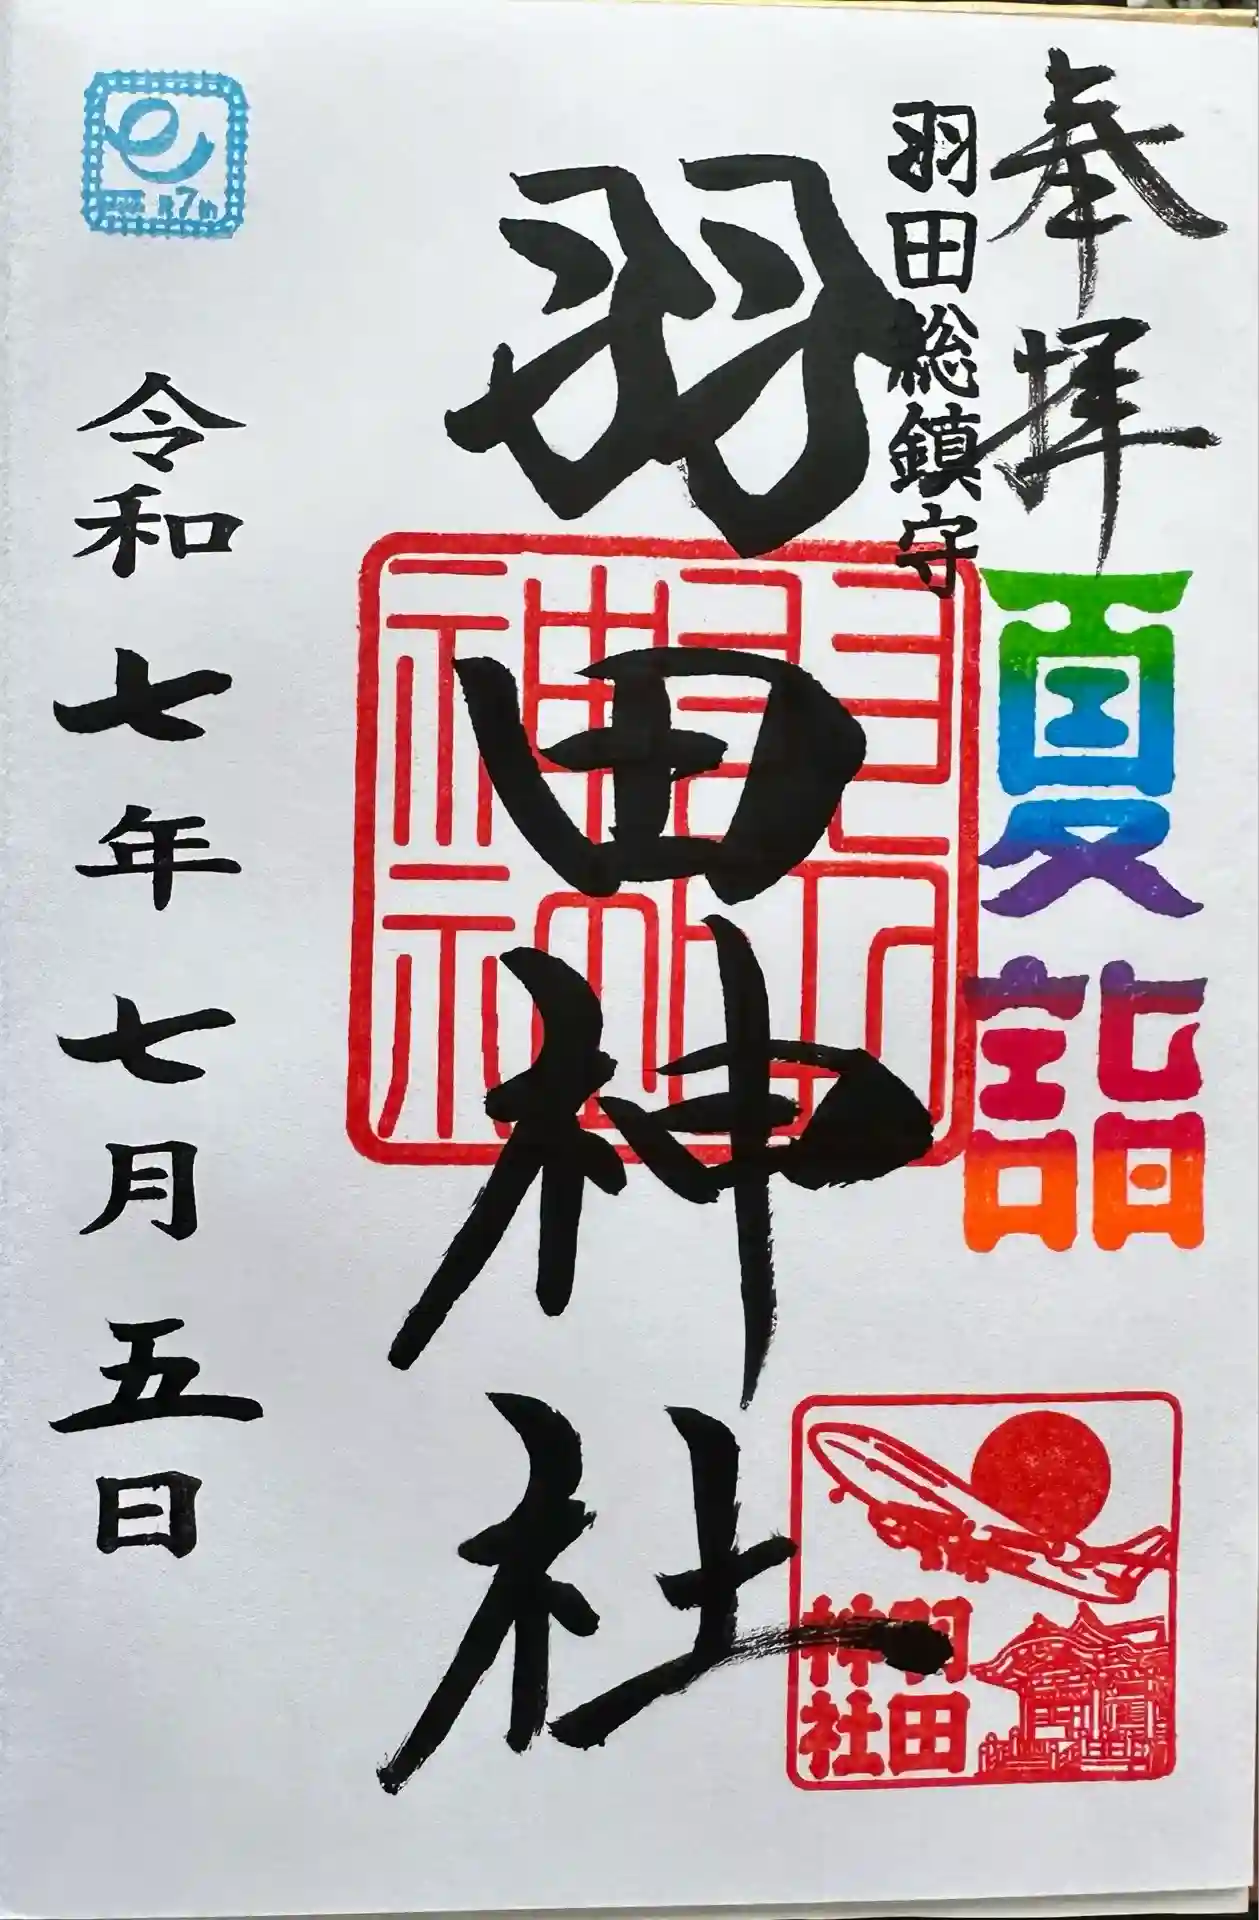 奉拝
夏詣
羽田総鎮守
羽田神社
羽田
神社
羽田
神社
令和七年七月五日
7th